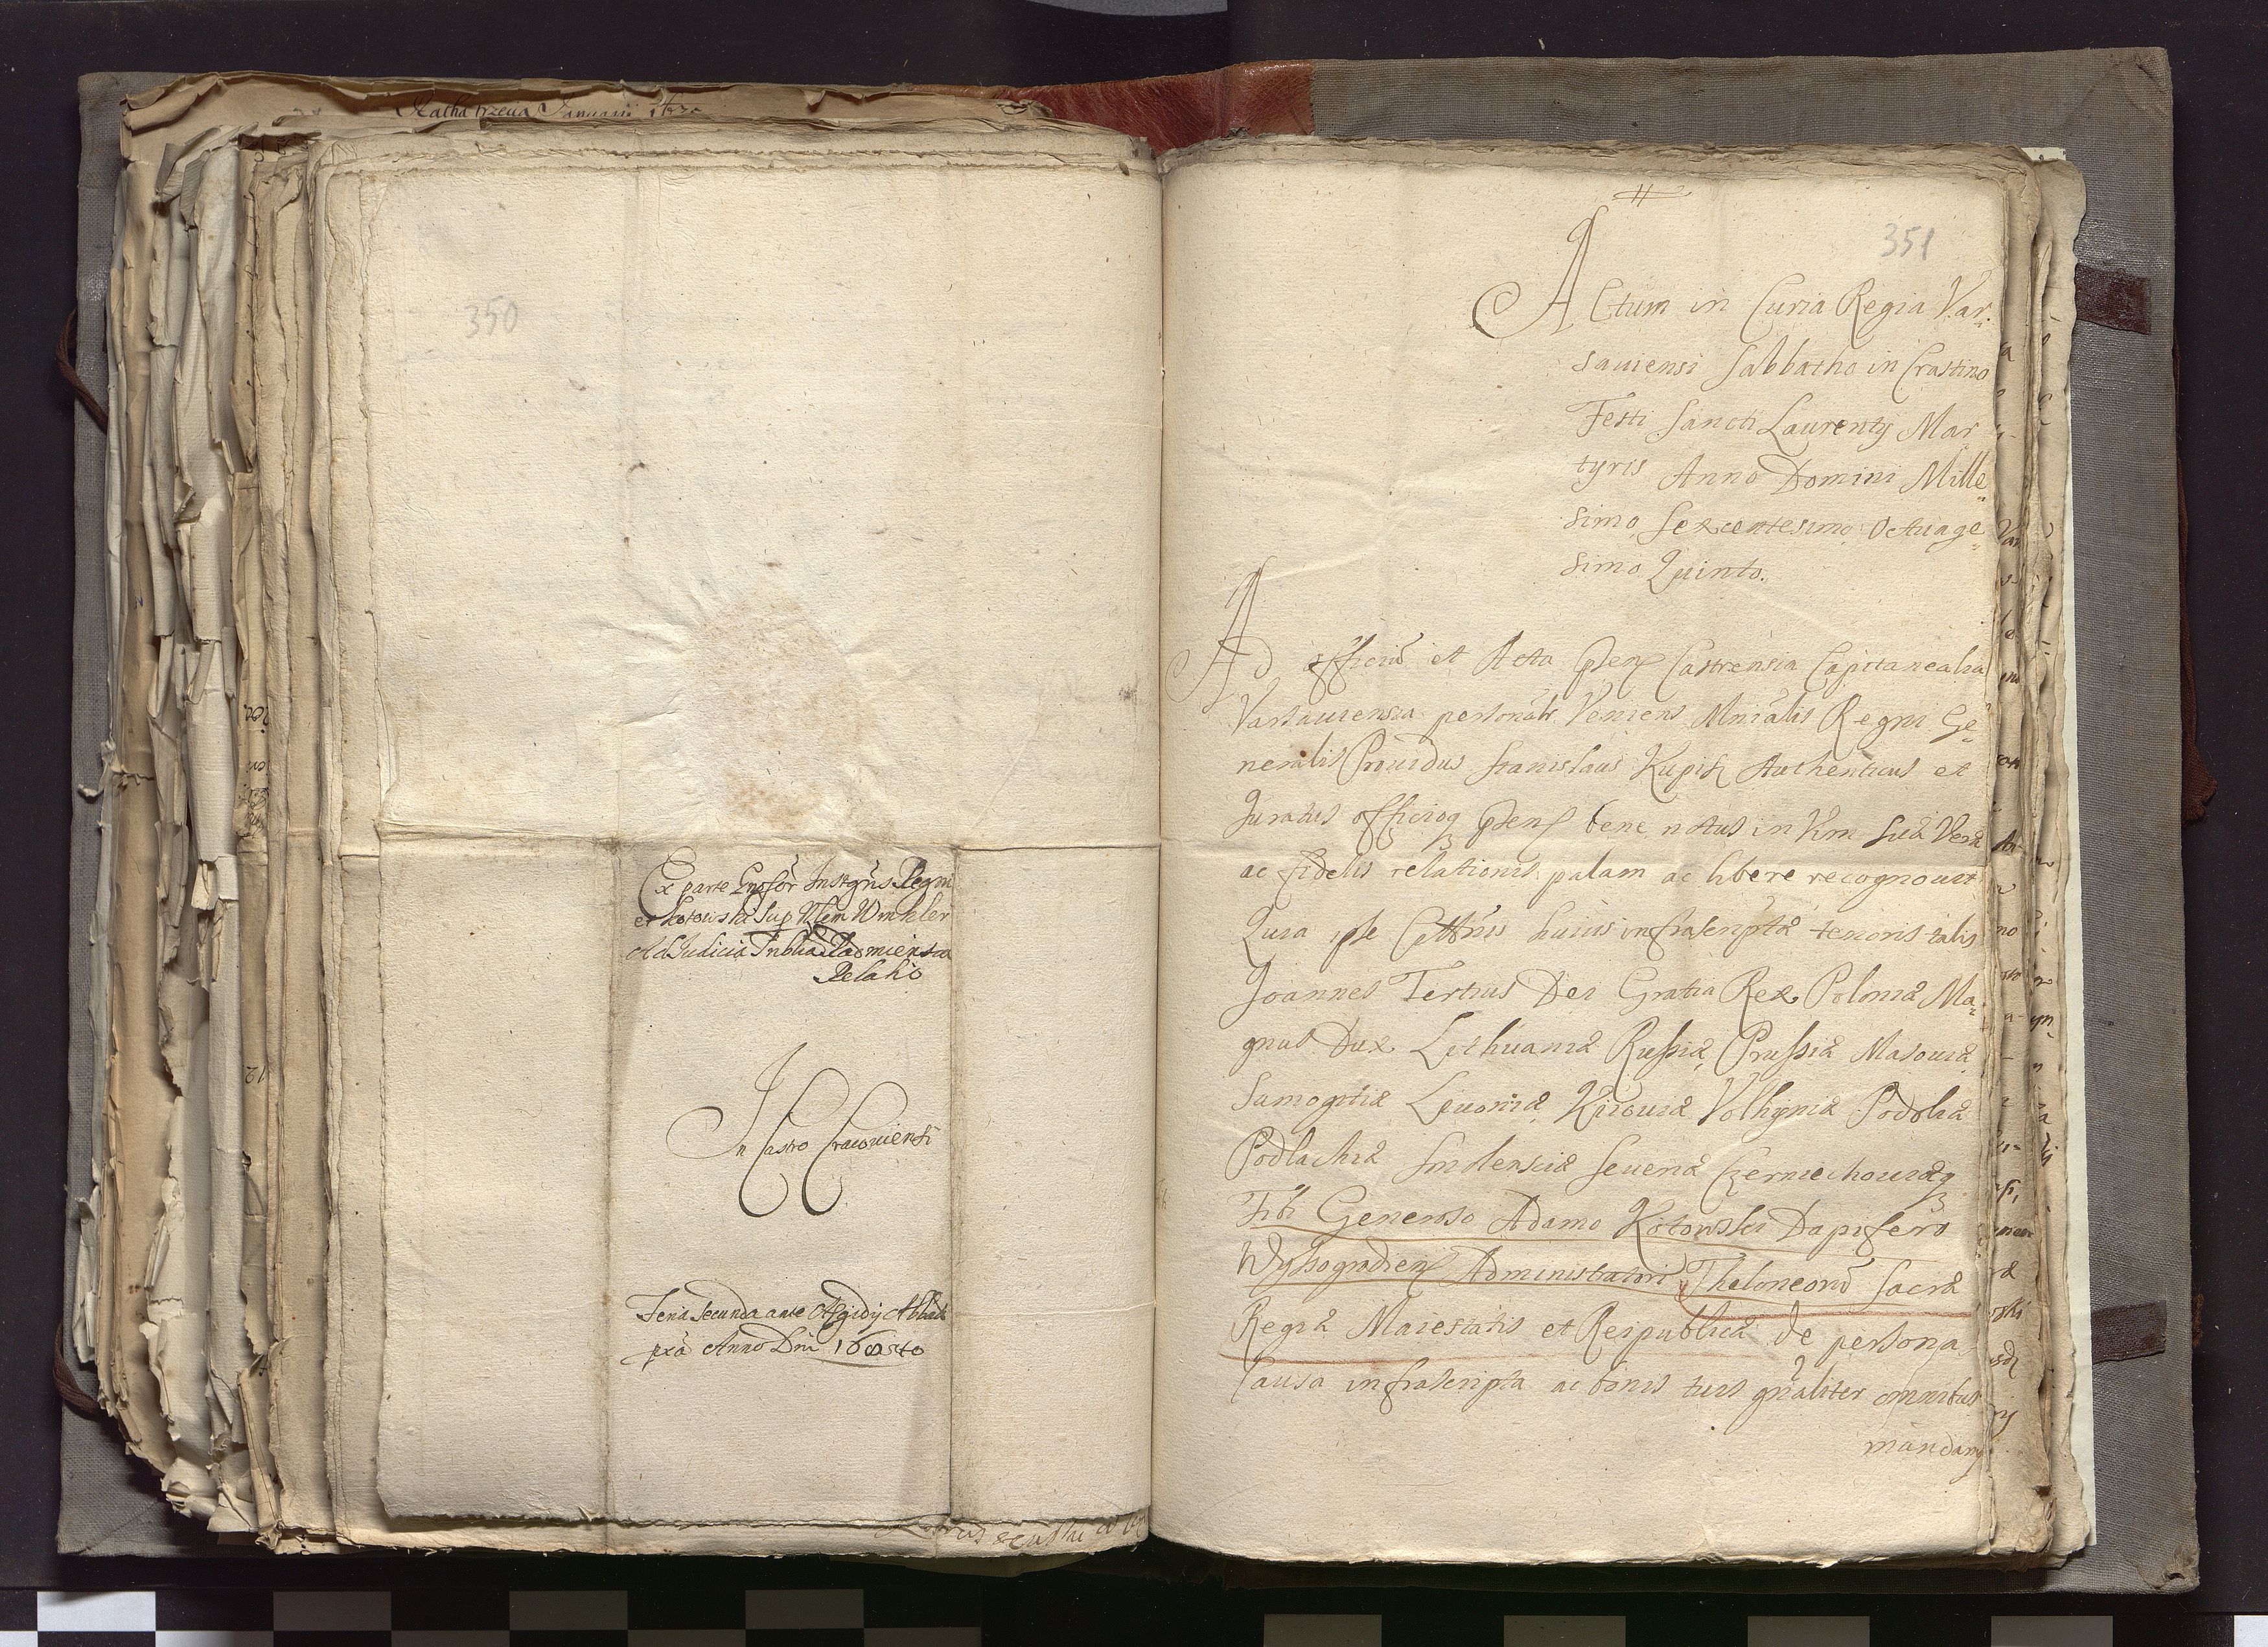 350
Ex parte Gnosōr Instgrīs Regni
et Kotowski sup Nlem Winkler
Ad Judicia Tribūa Radomiensia
Relatio
In Castro Cracouiensi
Feria Secunda ante Aegidij Abbatis
pxā Anno Dni
351
Actum in Curia Regia Var-
sauiensi Sabbatho in Crastino
Festi Sancti Laurentij Mar
tyris Anno Domini Mille-
simo Sexcentesimo Octuage-
simo Quinto.
Ad officiū et Acta pñen Castrensia Capitanealia
Varsauiensia personālr Veniens Mnrālis Regni Ge-
neralis Prouidus Stanislaus Kupisz Authenticus et
Juratus officioq pñen bene notus in Vim suæ Veræ
ac fidelis relationis palam ac libere recognouit
Quia ipse huius infrascriptæ tenoris talis
Joannes Tertius Dei Gratia Rex Poloniæ Ma-
gnus Dux Lithuaniæ Russiæ Prussiæ Masouiæ
Samogitiæ Liuoniæ Kiiouiæ Volhyniæ Podoliæ
Podlachiæ Smolensciæ Seueriæ Czerniechouiæq
Tibi Generoso Adamo Kotowski Dapifero
Wyssogradien Administratori Theloneorū Sacræ
Regiæ Maiestatis et Reipublicæ de persona
Causa infrascripta ac bonis tuis gnāliter omnibus
mandamus